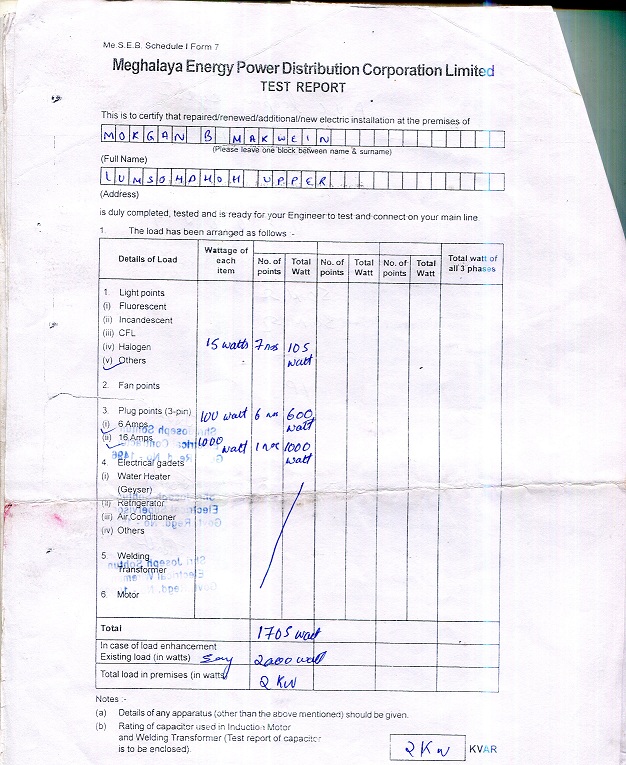 Me.S.E.B. Schedule I Form 7
Meghalaya Energy Power Distribution Corporation Limited
TEST REPORT
This is to certify that repaired/renewed/additional/new electric installation at the premises of
MORGAN B MAKWEIN
(Please leave one block between name & surname)
(Full Name)
LUMSOHDHOH UPPER
(Address)
is duly completed, tested and is ready for your Engineer to test and connect on your main line
1. The load has been arranged as follows :-
Details of Load Wattage of each item No. of points Total Watt No. of points Total Watt No. of points Total Watt Total watt of all 3 phases
1. Light points
(i) Fluorescent
(ii) Incandescent
(iii) CFL
(iv) Halogen 15 watts 7 nos 105 watt
(v) Others
2. Fan points
3. Plug points (3-pin) 100 watt 6 nos 600 watt
(i) 6 Amps
(ii) 16 Amps 1000 watt 1 nos 1000 watt
4. Electrical gadets
(i) Water Heater
(Geyser)
(ii) Refrigerator
(iii) Air Conditioner
(iv) Others
5. Welding
Transformer
6. Motor
Total 1705 watt
In case of load enhancement
Existing load (in watts) Say 2000 watt
Total load in premises (in watts) 2 KW
Notes :-
(a) Details of any apparatus (other than the above mentioned) should be given.
(b) Rating of capacitor used in Induction Motor
and Welding Transformer (Test report of capacitor
is to be enclosed). 2 KW KVAR